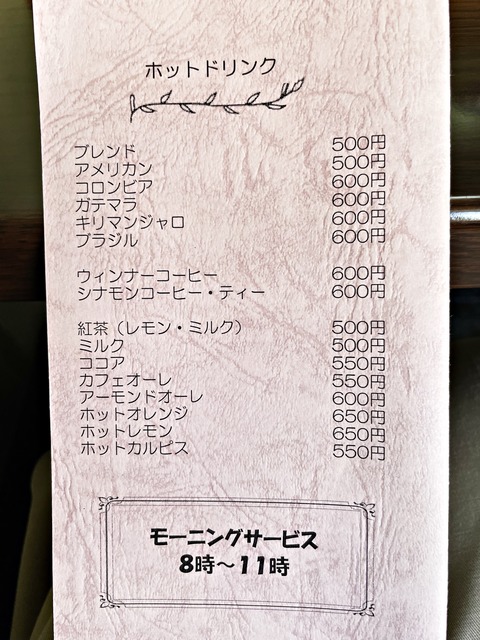 ホットドリンク
ブレンド 500円
アメリカン 500円
コロンビア 600円
ガテマラ 600円
キリマンジャロ 600円
ブラジル 600円
ウィンナーコーヒー 600円
シナモンコーヒー・ティー 600円
紅茶（レモン・ミルク） 500円
ミルク 500円
ココア 550円
カフェオーレ 550円
アーモンドオーレ 600円
ホットオレンジ 650円
ホットレモン 650円
ホットカルピス 550円
モーニングサービス
8時～11時